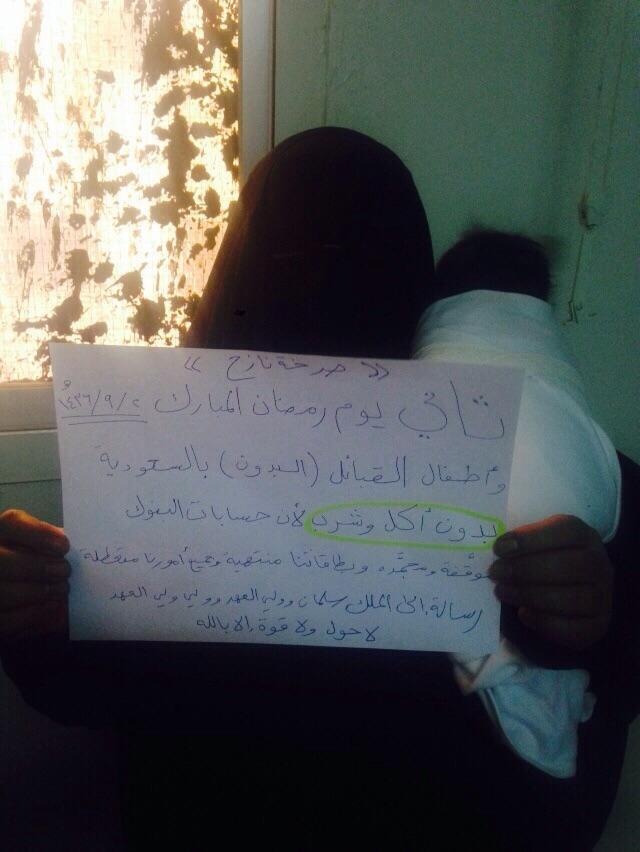 « صرخة نازح »
ثاني يوم رمضان المبارك ١٤٣٦/٩/٢ هـ
وأطفال القبائل (البدون) بالسعودية
بدون أكل وشرب لأن حسابات البنوك
موقفة ومجمّده وبطاقاتنا منتهية وجميع أمورنا متعطلة
رسالة إلى الملك سلمان وولي العهد وولي ولي العهد
لا حول ولا قوة إلا بالله